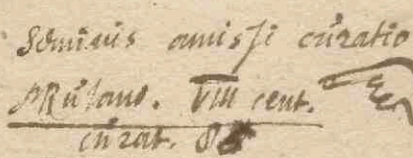 Seminis amissi curatio
Rulano. VIII cent.
curat. 8